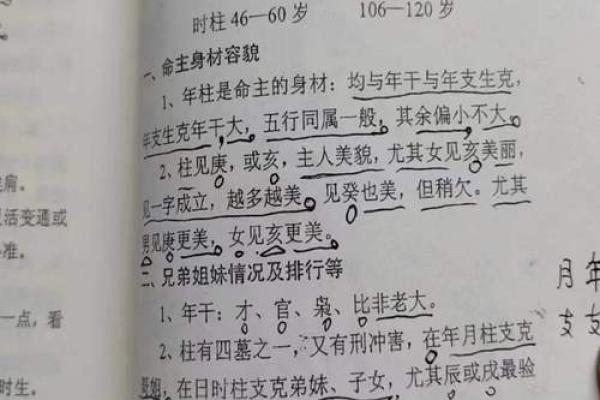 时柱 46—60 岁 106—120 岁
一、命主身材容貌
1、年柱是命主的身材：均与年干与年支生克，
年支生克年干大，五行同属一般，其余偏小不大。
2、柱见庚，或亥，主人美貌，尤其女见亥美丽，
见一字成立，越多越美。见癸也美，但稍欠。尤其
男见庚更美，女见亥更美。
二、兄弟姐妹情况及排行等
1、年干：才、官、枭、比非老大。
2、柱有四墓之一，又有刑冲害，在年月柱支克
兄姐，在日时柱支克弟妹、子女，尤其辰或戌最验
肩。
活变通或
准。
一点，看
时生。
月年
支支